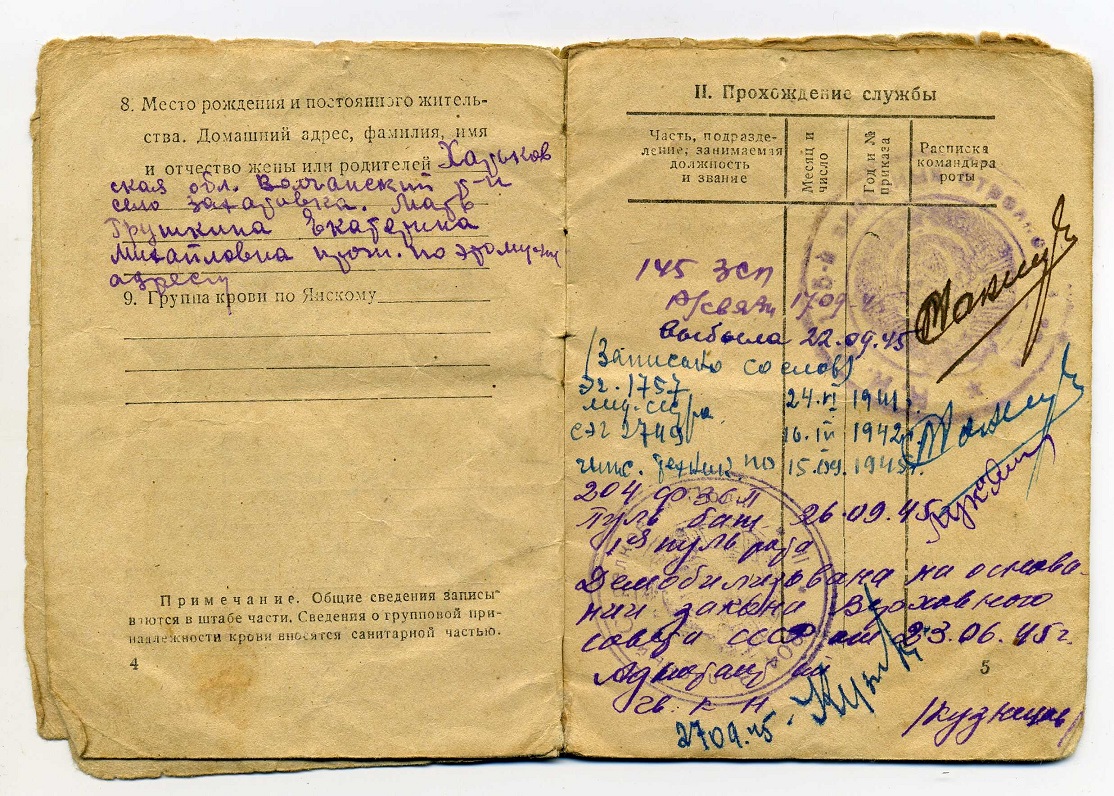 8. Место рождения и постоянного житель-
ства. Домашний адрес, фамилия, имя
и отчество жены или родителей Харьков
ская обл. Волчанский р-н
село Захаровка. Мать
Грушкина Екатерина
Михайловна прож. по этому же
адресу
9. Группа крови по Янскому
Примечание. Общие сведения записы-
ваются в штабе части. Сведения о групповой при-
надлежности крови вносятся санитарной частью.
4
II. Прохождение службы
Часть, подразде-
ление, занимаемая
должность
и звание
Месяц и
число
Год и №
приказа
Расписка
командира
роты
145 зсп
Р/связи 17.09
выбыла 22.09.45
(Записано со слов)
эг. 1757
мед. сестра 24.VI 1941 г.
сэг 2749 16.IV 1942 г.
15.09. 1945 г.
204
пуль бат 26.09.45
1 я пуль рота
Демобилизована на основа-
нии закона Верховного
совета СССР от 23.06.45 г.
Адъютант
гв. к-н
27.09.45. /Кузнецов/
5